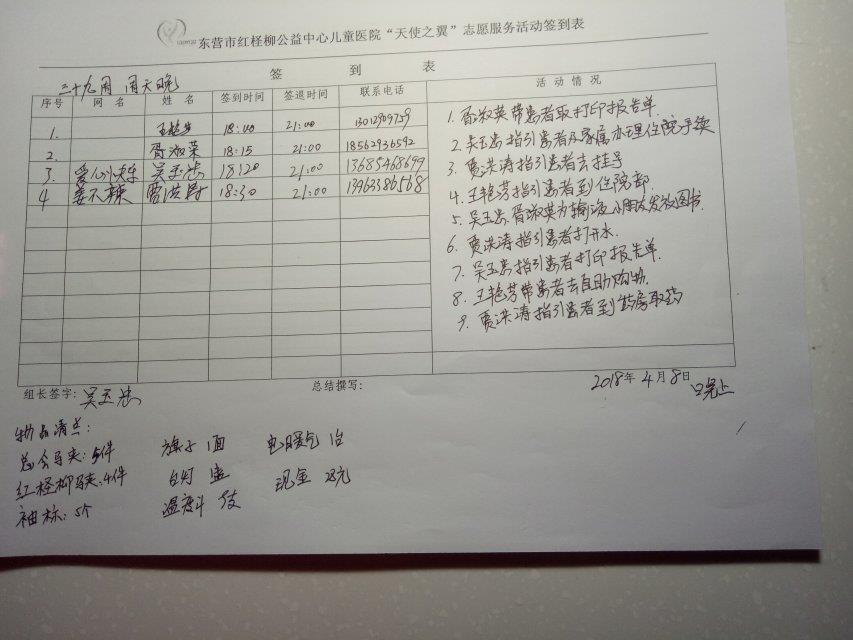 东营市红柽柳公益中心儿童医院“天使之翼”志愿服务活动签到表
签 到 表
三十九周 周天晚
序号 网 名 姓 名 签到时间 签退时间 联系电话 活 动 情 况
1. 王艳芳 18:40 21:00 13012909759
2. 胥淑荣 18:15 21:00 18562936592
3. 爱心快车 吴玉忠 18:20 21:00 13685468699
4 姜不辣 贾洪涛 18:30 21:00 13963386568
1. 胥淑英带患者取打印报告单.
2. 吴玉忠指引患者及家属办理住院手续
3. 贾洪涛指引患者去挂号
4. 王艳芳指引患者到住院部.
5. 吴玉忠.胥淑英为输液小朋友发放图书.
6. 贾洪涛指引患者打开水.
7. 吴玉忠指引患者打印报告单.
8. 王艳芳带患者去自助购物.
9. 贾洪涛指引患者到药房取药
组长签字: 吴玉忠 总结撰写: 2018年4月8日 晚上
物品清点:
总会马夹: 5件 旗子 1面 电暖气 1台
红柽柳马夹: 4件 台灯 1盏 现金
袖标: 5个 温度计